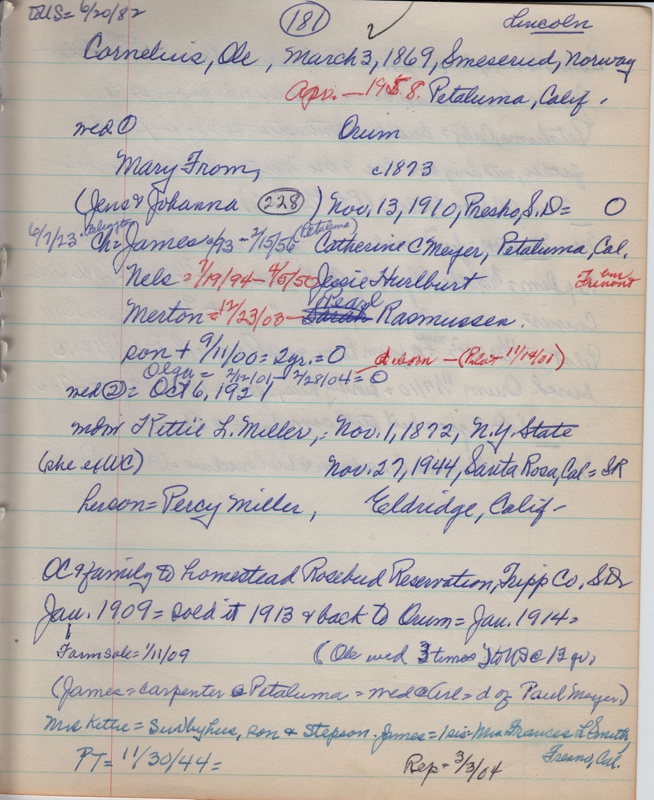 = 6/20/82 (181) Lincoln
Cornelius, Ole, March 3, 1869, Smeserud, Norway
Apr. — 1958. Petaluma, Calif.
wed Orum
Mary From, c1873
(Jens & Johanna (228)) Nov. 13, 1910, Presho, S.D. = O
6/7/23 Arlington Ch = James 93 - 2/15/56 (Petaluma) Catherine C Meyer, Petaluma, Cal.
Nels = 7/19/94 - 4/5/50 Jessie Hurlburt bur Fremont
Merton = 12/23/08 — Sarah Pearl Rasmussen.
son + 9/11/00 = 2 yr. = O d. born - (Pilot 11/19/01)
Olga = 2/12/01 - 2/28/04 = O
wed (2) = Oct 6, 1921
mdm Kettie L. Miller, = Nov. 1, 1872, N.Y. State
(she ex WC) Nov. 27, 1944, Santa Rosa, Cal = SR
her son = Percy Miller, Eldridge, Calif -
OC & family to homestead Rosebud Reservation, Tripp Co, S.D.
Jan. 1909 = sold it 1913 & back to Orum = Jan. 1914 =
Farm sale = 1/11/09 (Ole wed 3 times) to US @ 13 yr.
(James = carpenter @ Petaluma = wed @ Arl = d of Paul Meyer)
Mrs Kettie = Surv by hus, son & stepson. James = 1 sis = Mrs Frances L Smith,
Fresno, Cal.
PT = 11/30/44 = Rep = 3/3/04